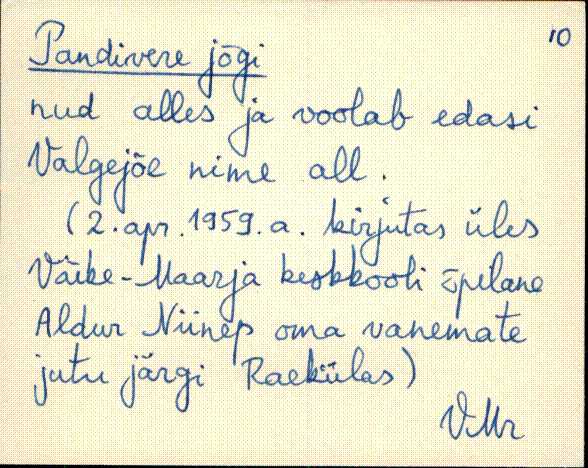 10
Pandivere jõgi
nud alles ja voolab edasi
Valgejõe nime all.
(2. apr. 1959. a. kirjutas üles
Väike-Maarja keskkooli õpilane
Aldur Niinep oma vanemate
jutu järgi Raekülas)
VMr